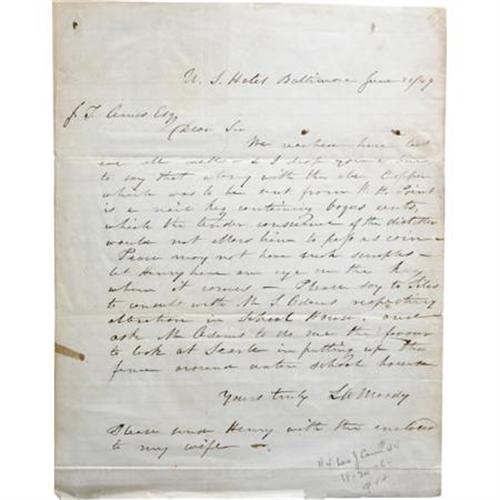 U. S. Hotel Baltimore June 21/49
J. T. Ames Esq
Dear Sir
We reached here last
eve all well & I drop you a line
to say that along with the old Copper
which was to be sent from W. H.
is a nail keg containing bogus cents,
which the tender conscience of the
would not allow him to pass as coin –
may not have such scruples –
let Henry have an eye on the keg
when it comes – Please say to
to consult with Mr S. Adams respecting
alteration in School House, and
ask Mr Adams to do me the favour
to look at Searle in putting up the
fence around school house
Yours truly
Please send Henry with the enclosed
to my wife –